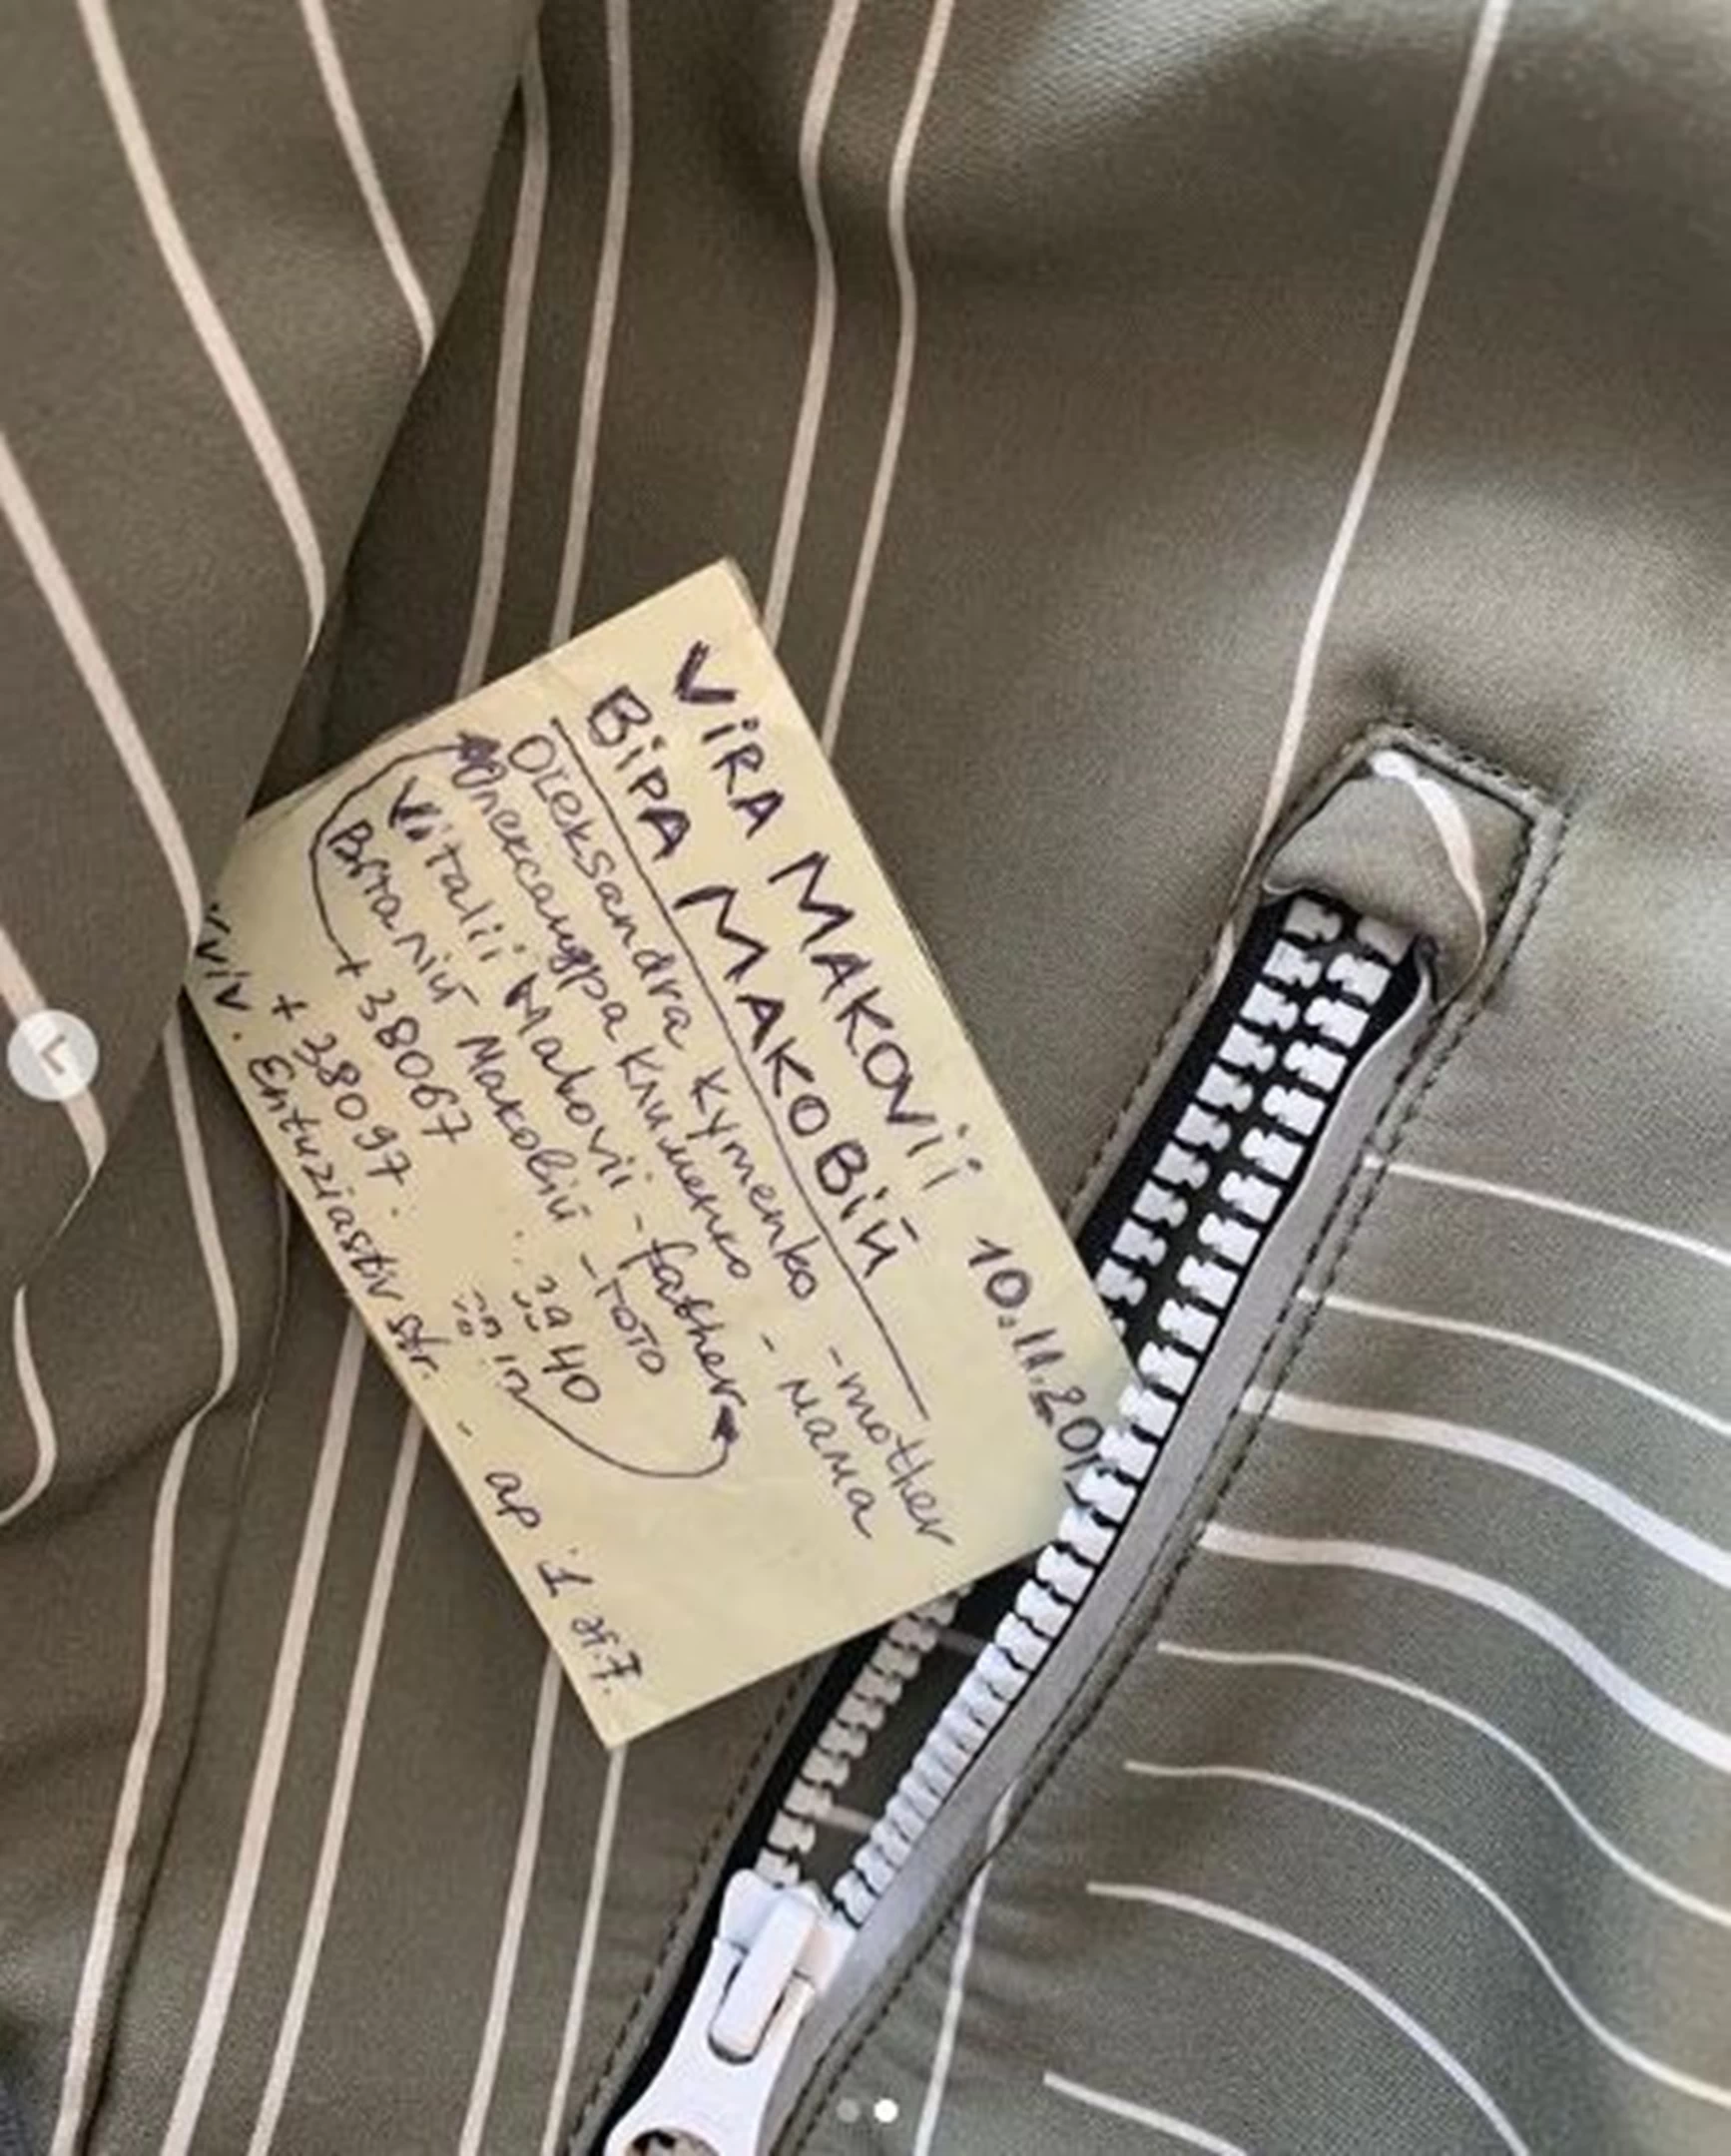 ViRA MAKOVii 10.11.20
ВіРА МАКОВіЙ
Oleksandra Kymenko - mother
Олександра Клименко - мама
Vitalii Makovii - father
Віталій Маковій - тото
+ 38067 40
+ 38097
Entuziastiv str. - ap
L